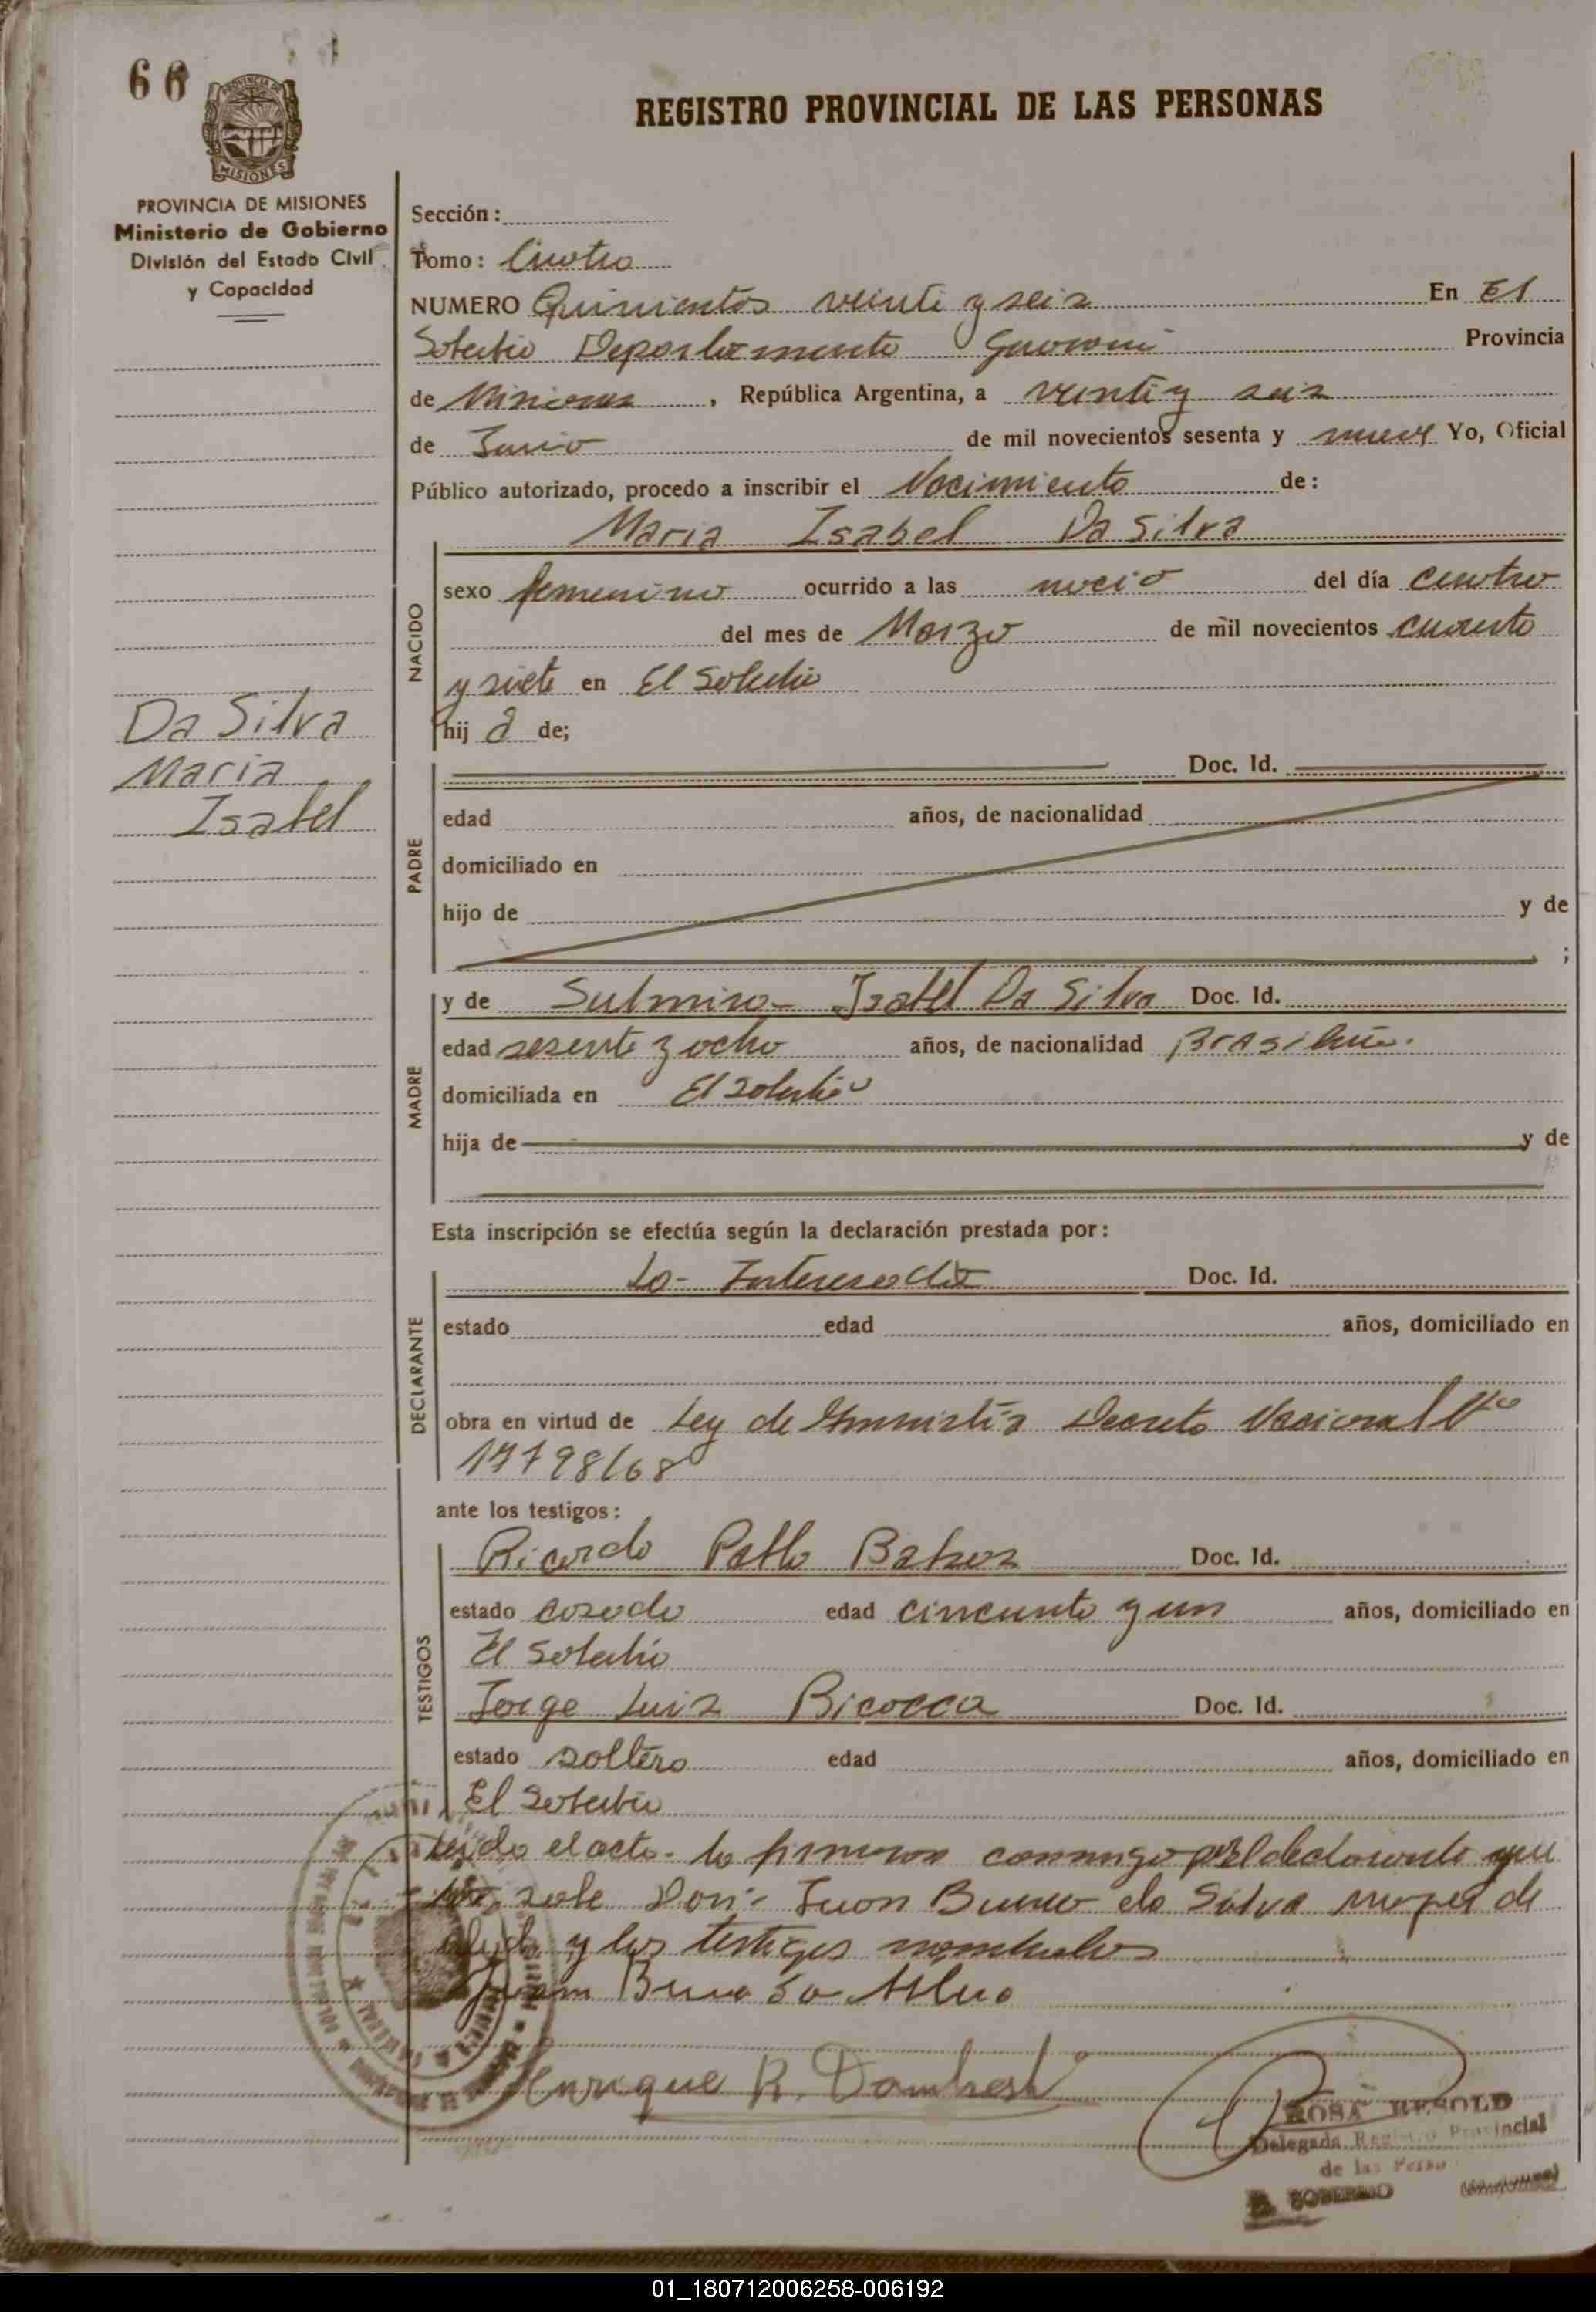 66
REGISTRO PROVINCIAL DE LAS PERSONAS
PROVINCIA DE MISIONES
MISIONES
PROVINCIA DE MISIONES
Ministerio de Gobierno
División del Estado Civil
y Capacidad
Sección:
Tomo: Cuatro
NUMERO Quinientos veinte y seis En El
Soberbio Departamento Guarani Provincia
de Misiones, República Argentina, a veinte y seis
de Junio de mil novecientos sesenta y nueve Yo, Oficial
Público autorizado, procedo a inscribir el Nacimiento de:
Maria Isabel Da Silva
NACIDO
sexo femenino ocurrido a las nueve del día cuatro
del mes de Marzo de mil novecientos cuarenta
y siete en El Soberbio
hij a de;
Da Silva
Maria
Isabel
PADRE
Doc. Id.
edad años, de nacionalidad
domiciliado en
hijo de y de
;
MADRE
y de Isabel Da Silva Doc. Id.
edad sesenta y ocho años, de nacionalidad Brasileña.
domiciliada en El Soberbio
hija de y de
Esta inscripción se efectúa según la declaración prestada por:
DECLARANTE
La Interesada Doc. Id.
estado edad años, domiciliado en
obra en virtud de Ley de Amnistia Decreto Nacional Nº
17798/68
ante los testigos:
TESTIGOS
Ricardo Pablo Doc. Id.
estado casado edad cincuenta y un años, domiciliado en
El Soberbio
Jorge Luis Bicocca Doc. Id.
estado soltero edad años, domiciliado en
El Soberbio
Leida el acta la firmaron conmigo por el declarante que
no sabe Don Juan Bueno da Silva
y los testigos nombrados
Juan Da Silva
Enrique R.
ROSA RESOLD
Delegada Registro Provincial
de las Perso
EL SOBERBIO (Misiones)
01_180712006258-006192